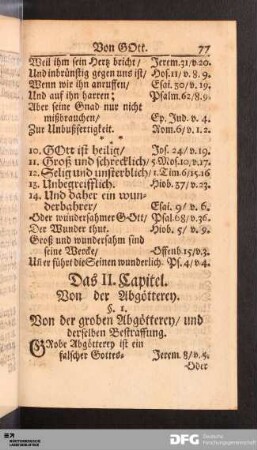 Von GOtt. 77
Weil ihm sein Hertz bricht/ Jerem.31/v.20.
Und inbrünstig gegen uns ist/ Hos.11/v.8.9.
Wenn wir ihn anruffen/ Esai. 30/v.19.
Und auf ihn harren; Psalm.62/8.9.
Aber seine Gnad nur nicht
mißbrauchen/ Ep. Jud. v. 4.
Zur Unbußfertigkeit. Rom.6/ v. 1. 2.
* * *
10. GOtt ist heilig/ Jos. 24/v. 19.
11. Groß und schrecklich/ 5 Mos.10/v.17.
12. Selig und unsterblich/ 1.Tim.6/15.16
13. Unbegreifflich. Hiob. 37/v. 23.
14. Und daher ein wun-
derbahrer/ Esai. 9/ v. 6.
Oder wundersahmer GOtt/ Psal.68/v.36.
Der Wunder thut. Hiob. 5/ v. 9.
Groß und wundersahm sind
seine Wercke/ Offenb.15/v.3.
Uñ er führt die Seinen wunderlich. Ps.4/v.4.
Das II. Capitel.
Von der Abgötterey.
§. 1.
Von der groben Abgötterey/ und
derselben Bestraffung.
GRobe Abgötterey ist ein
falscher Gottes- Jerem. 8/ v. 5.
Oder
DFG Deutsche
Forschungsgemeinschaft